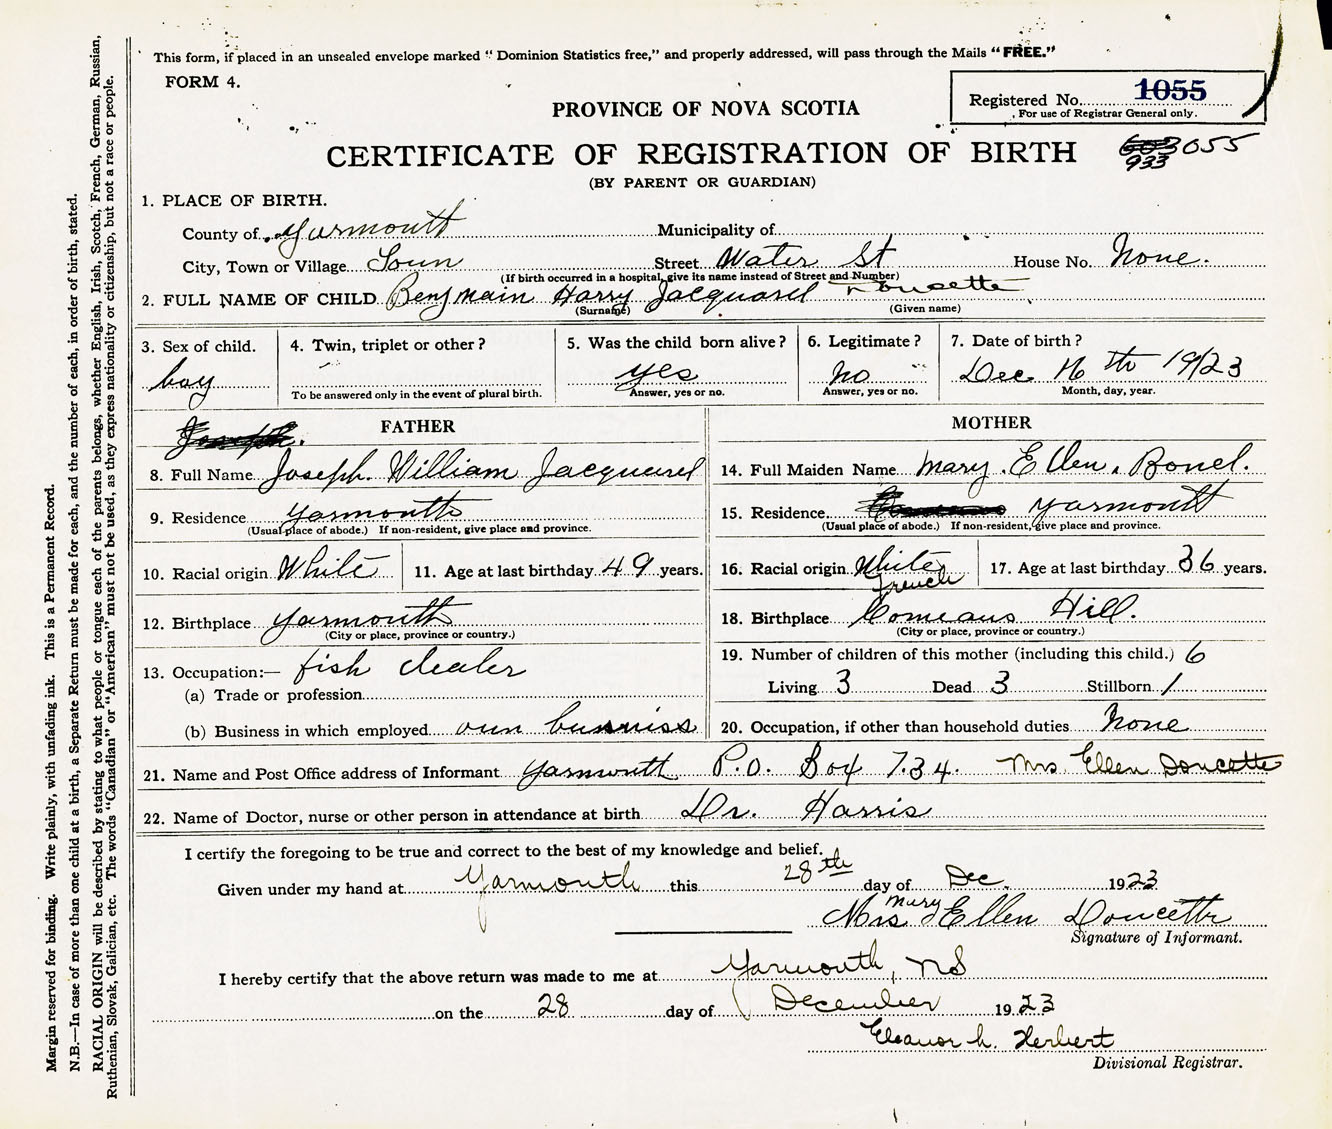 This form, if placed in an unsealed envelope marked “ Dominion Statistics free,” and properly addressed, will pass through the Mails “FREE.”
FORM 4.
Registered No. 1055
For use of Registrar General only.
PROVINCE OF NOVA SCOTIA
CERTIFICATE OF REGISTRATION OF BIRTH 603055
933
(BY PARENT OR GUARDIAN)
1. PLACE OF BIRTH.
County of Yarmouth Municipality of
City, Town or Village Town Street Water St House No. None.
(If birth occurred in a hospital, give its name instead of Street and Number)
2. FULL NAME OF CHILD Benjmain Harry Jacquard Doucette
(Surname) (Given name)
3. Sex of child. 4. Twin, triplet or other? 5. Was the child born alive? 6. Legitimate? 7. Date of birth?
boy yes no Dec 16 th 1923
To be answered only in the event of plural birth. Answer, yes or no. Answer, yes or no. Month, day, year.
FATHER MOTHER
8. Full Name Joseph William Jacquard 14. Full Maiden Name Mary. Ellen. Bond.
9. Residence Yarmouth 15. Residence Yarmouth
(Usual place of abode.) If non-resident, give place and province. (Usual place of abode.) If non-resident, give place and province.
10. Racial origin White 11. Age at last birthday 49 years. 16. Racial origin White 17. Age at last birthday 36 years.
French
12. Birthplace Yarmouth 18. Birthplace Comeaus Hill.
(City or place, province or country.) (City or place, province or country.)
13. Occupation:— fish dealer 19. Number of children of this mother (including this child.) 6
(a) Trade or profession Living 3 Dead 3 Stillborn 1
(b) Business in which employed own busniss 20. Occupation, if other than household duties None
21. Name and Post Office address of Informant Yarmouth P.O. Box 734. Mrs. Ellen Doucette
22. Name of Doctor, nurse or other person in attendance at birth Dr. Harris
I certify the foregoing to be true and correct to the best of my knowledge and belief.
Given under my hand at Yarmouth this 28th day of Dec. 1923
Mrs Mary Ellen Doucette
Signature of Informant.
I hereby certify that the above return was made to me at Yarmouth, NS
on the 28 day of December 1923
Eleanor L. Herbert
Divisional Registrar.
Margin reserved for binding. Write plainly, with unfading ink. This is a Permanent Record.
N.B.—In case of more than one child at a birth, a Separate Return must be made for each, and the number of each, in order of birth, stated.
RACIAL ORIGIN will be described by stating to what people or tongue each of the parents belongs, whether English, Irish, Scotch, French, German, Russian,
Ruthenian, Slovak, Galician, etc. The words “Canadian” or “American” must not be used, as they express nationality or citizenship, but not a race or people.